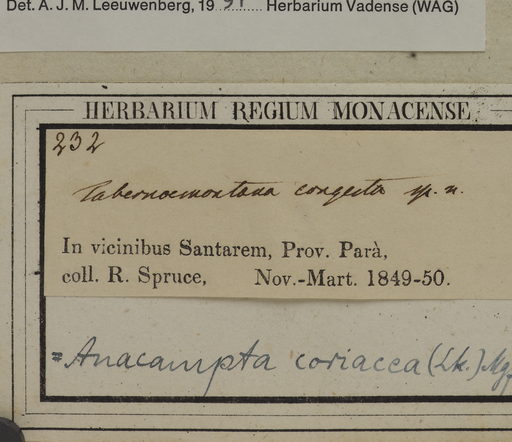 Det. A. J. M. Leeuwenberg, 19 91 Herbarium Vadense (WAG)
HERBARIUM REGIUM MONACENSE
232
Tabernaemontana congesta sp. n.
In vicinibus Santarem, Prov. Parà,
coll. R. Spruce, Nov.-Mart. 1849-50.
= Anacampta coriacea (Lk.) Mgf